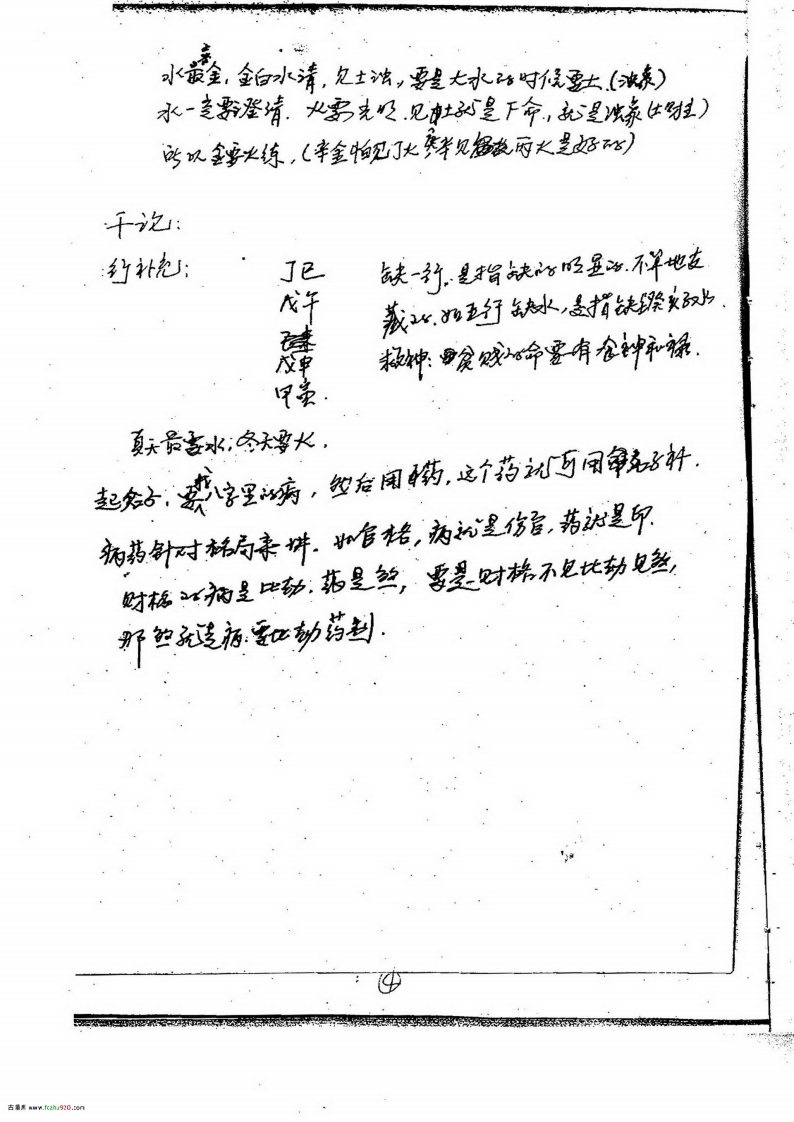 水最要金,金白水清,见土浊,要是大水的时候要土.(浊象)
水一定要澄清.火要光明.见土就是下命,就是浊象(土附主)
所以金要火练,(辛金怕见丁火 见丙火是好的)
干论:
行补充:
丁巳
戊午
戊申
甲寅.
缺一行,是指缺的明显的.不算地支
藏的.如五行缺水,是指缺 癸亥子水
救神:贫贱的命要有食神和禄.
夏天最要水;冬天要火.
起名子,要找八字里的病,然后用药,这个药就可用 名子补.
病药针对格局来讲.如官格,病就是伤官,药就是印.
财格的病是比劫.药是煞,要是财格不见比劫见煞,
那煞就是病.要比劫药制.
④
古籍库 www.fozhu920.com